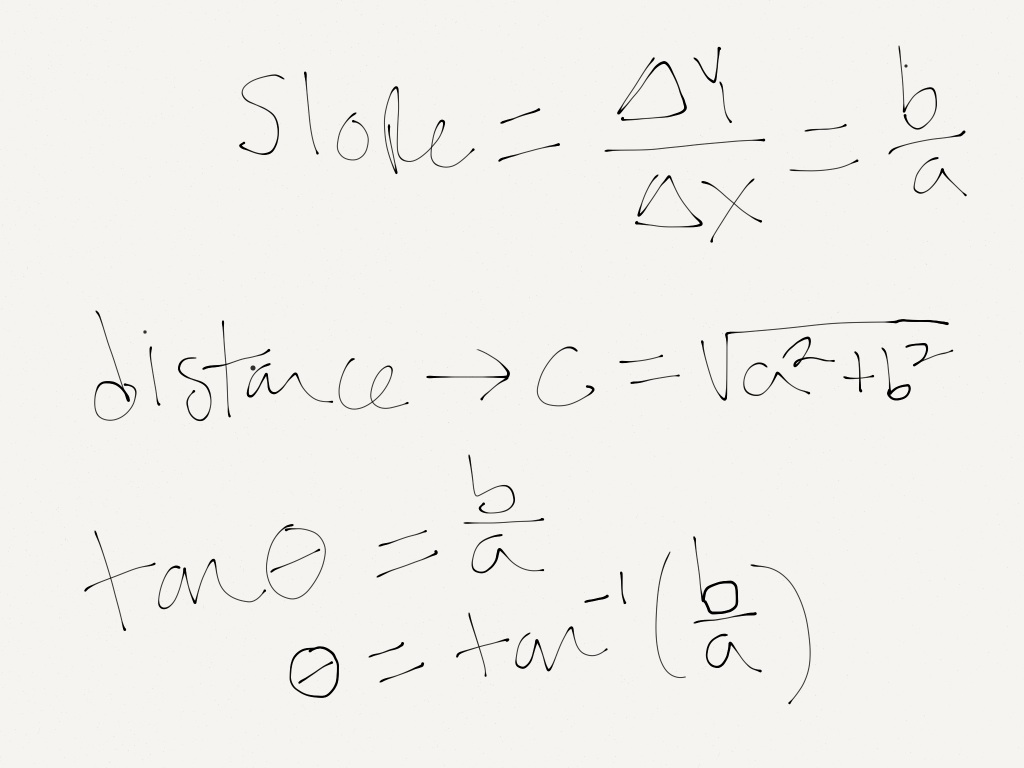 Slope = ΔY/ΔX = b/a
distance → c = √(a²+b²)
tanθ = b/a
θ = tan⁻¹(b/a)